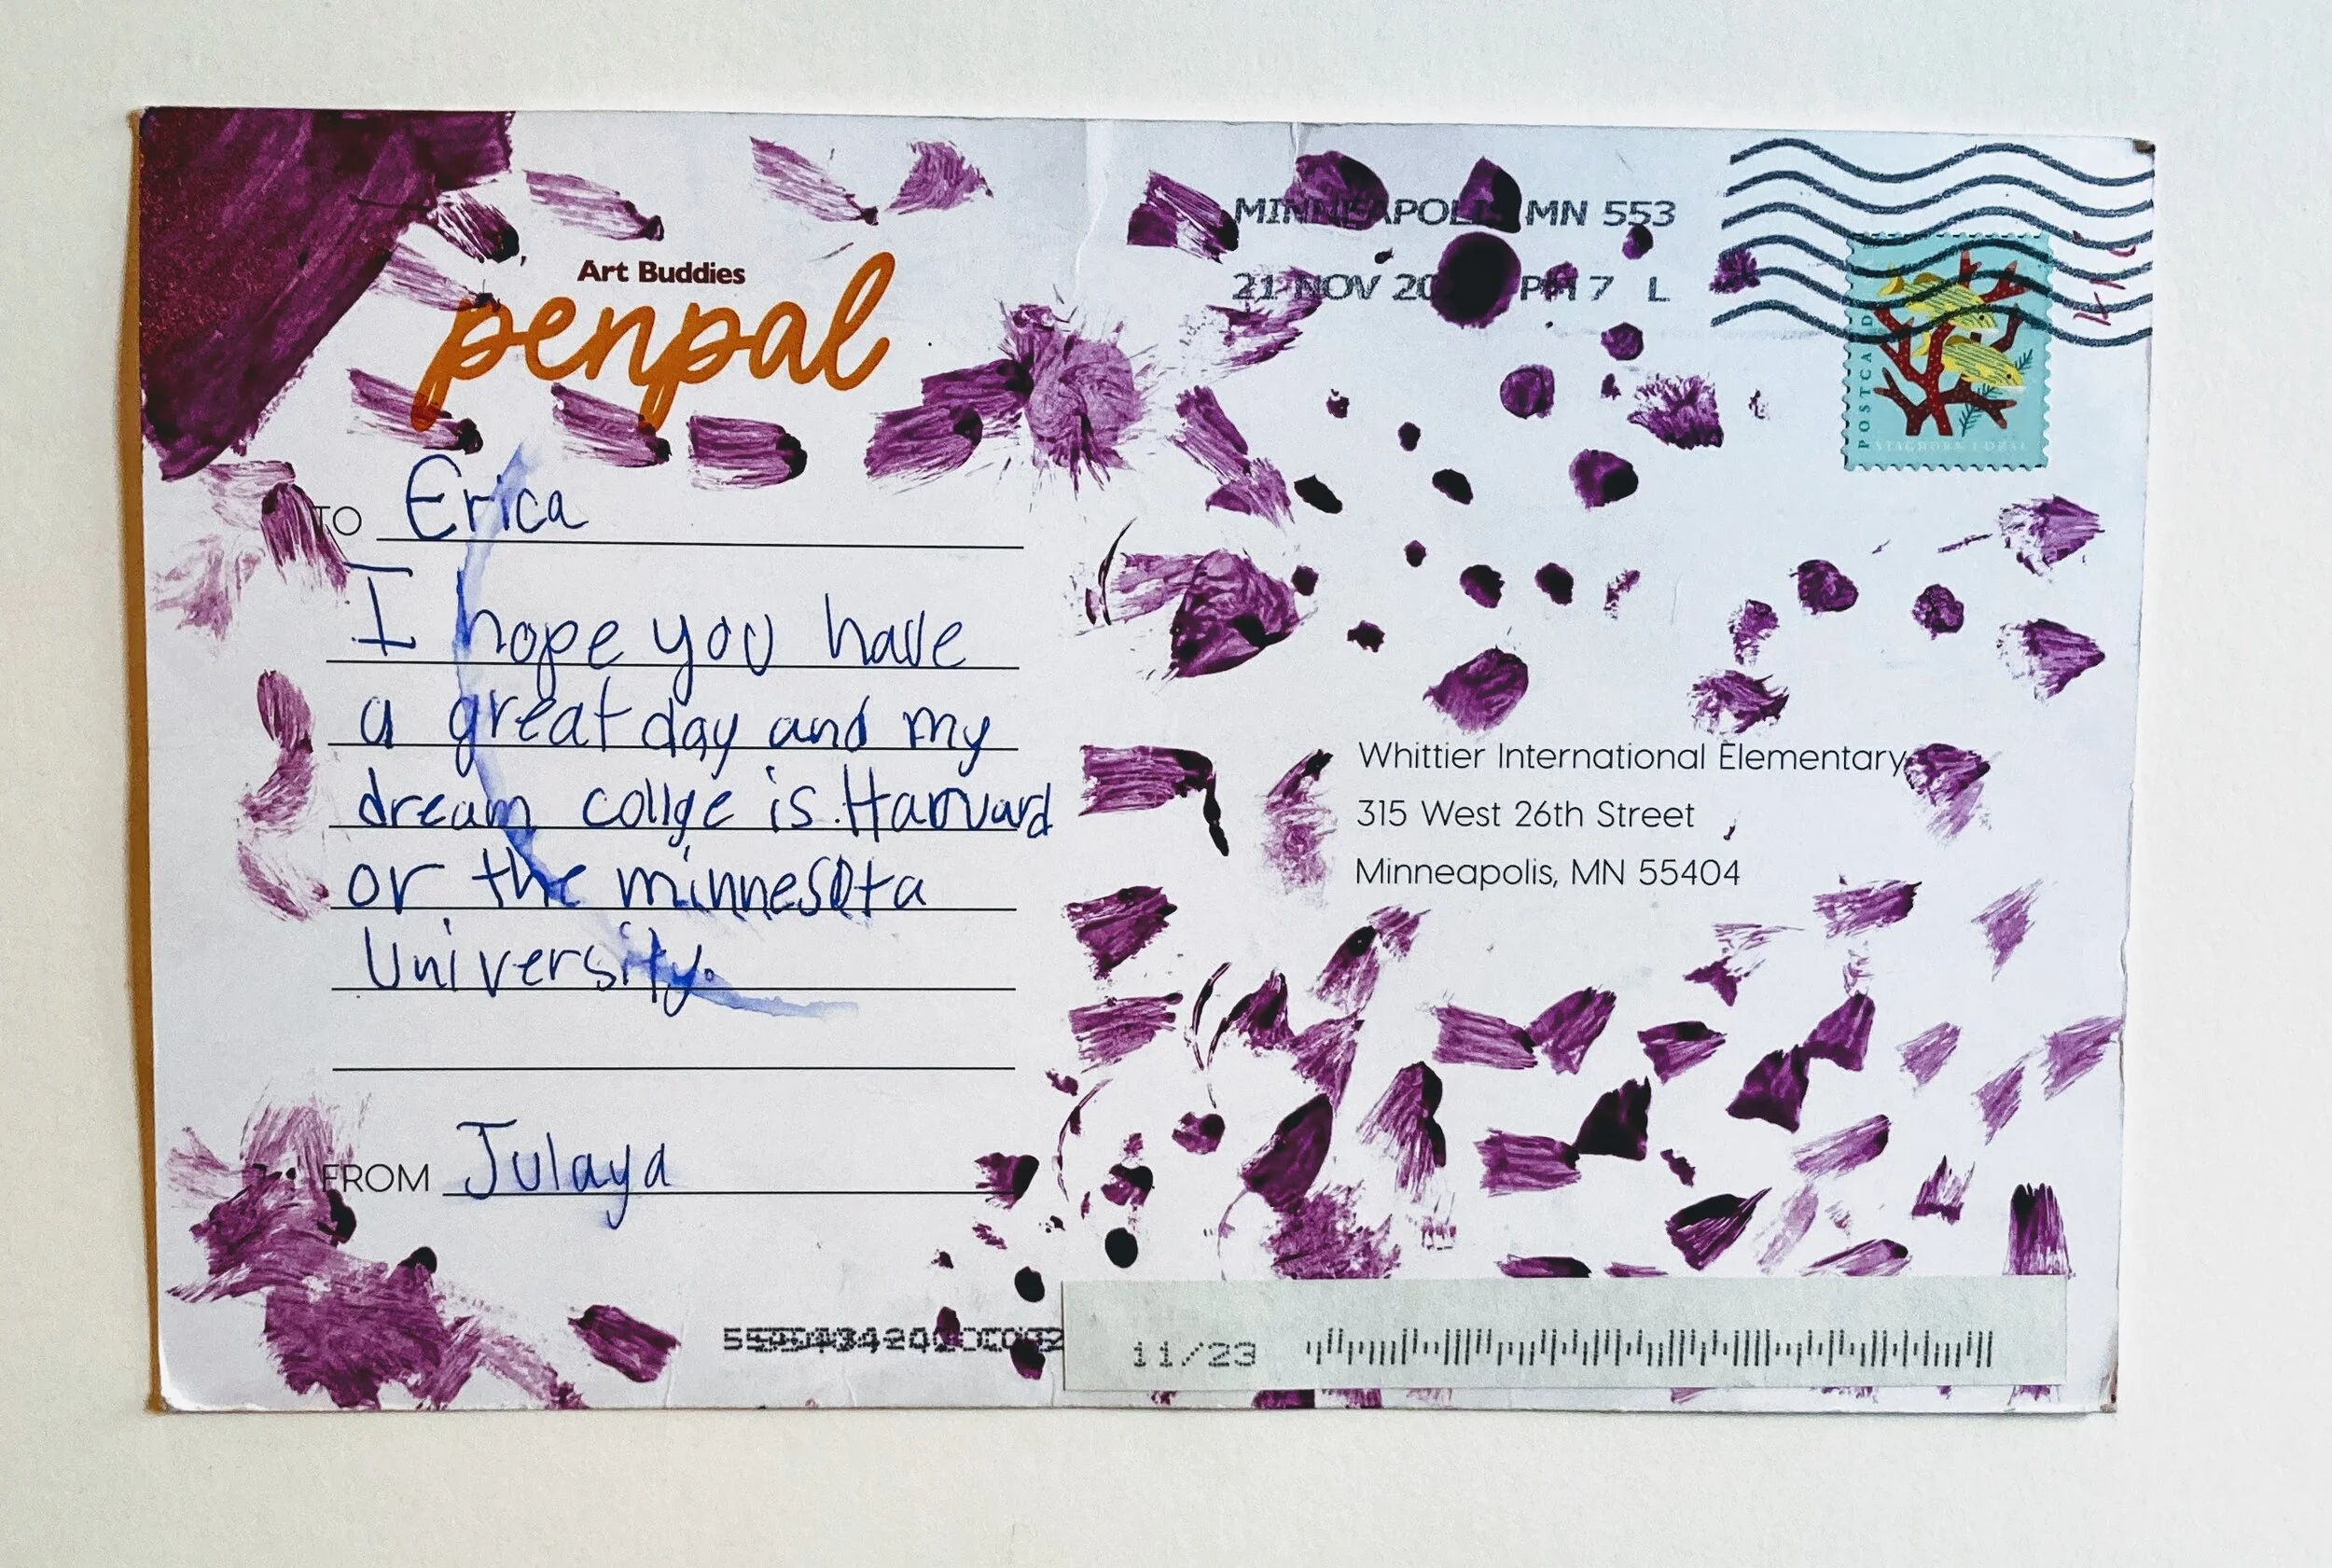 Art Buddies
penpal
TO Erica
I hope you have
a great day and my
dream collge is Harvard
or the minnesota
University.
FROM Julaya
MINNEAPOLIS MN 553
21 NOV 20 PM 7 L
POSTCARD
STAGHORN CORAL
Whittier International Elementary
315 West 26th Street
Minneapolis, MN 55404
11/23